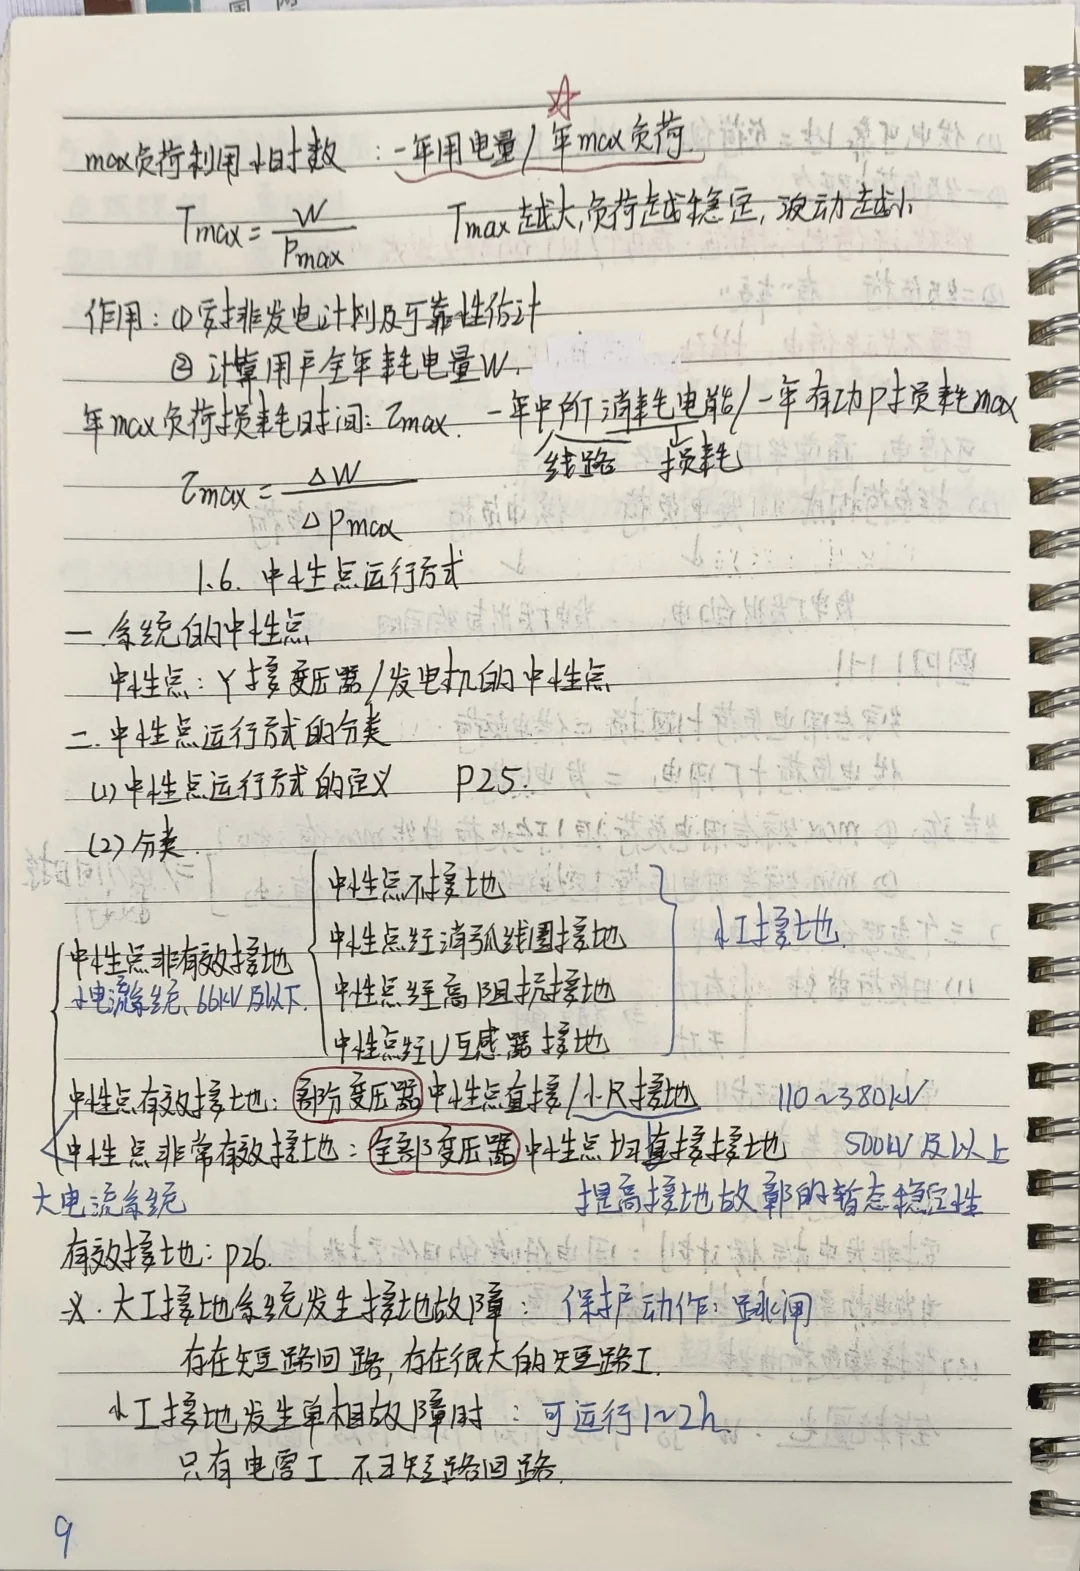 max负荷利用小时数：一年用电量/年max负荷.
Tmax = W / Pmax　Tmax越大,负荷越稳定,波动越小
作用：①安排发电计划及可靠性估计
②计算用户全年耗电量W.
年max负荷损耗时间：τmax. 一年中所消耗电能/一年有功P损耗max
线路　损耗
τmax = ΔW / ΔPmax
1.6. 中性点运行方式
一.系统的中性点
中性点：Y接变压器/发电机的中性点
二.中性点运行方式的分类
(1)中性点运行方式的定义　P25.
(2)分类.
中性点不接地
中性点非有效接地　中性点经消弧线圈接地　小I接地.
小电流系统、66kV及以下.　中性点经高阻抗接地
中性点经U互感器接地
中性点有效接地：部分变压器中性点直接/小R接地　110~380kV
中性点非常有效接地：全部变压器中性点均直接接地　500kV及以上
大电流系统　提高接地故障的暂态稳定性
有效接地：P26.
义.大I接地系统发生接地故障：保护动作：跳闸
存在短路回路,存在很大的短路I.
小I接地发生单相故障时：可运行1~2h
只有电容I.不是短路回路.
9